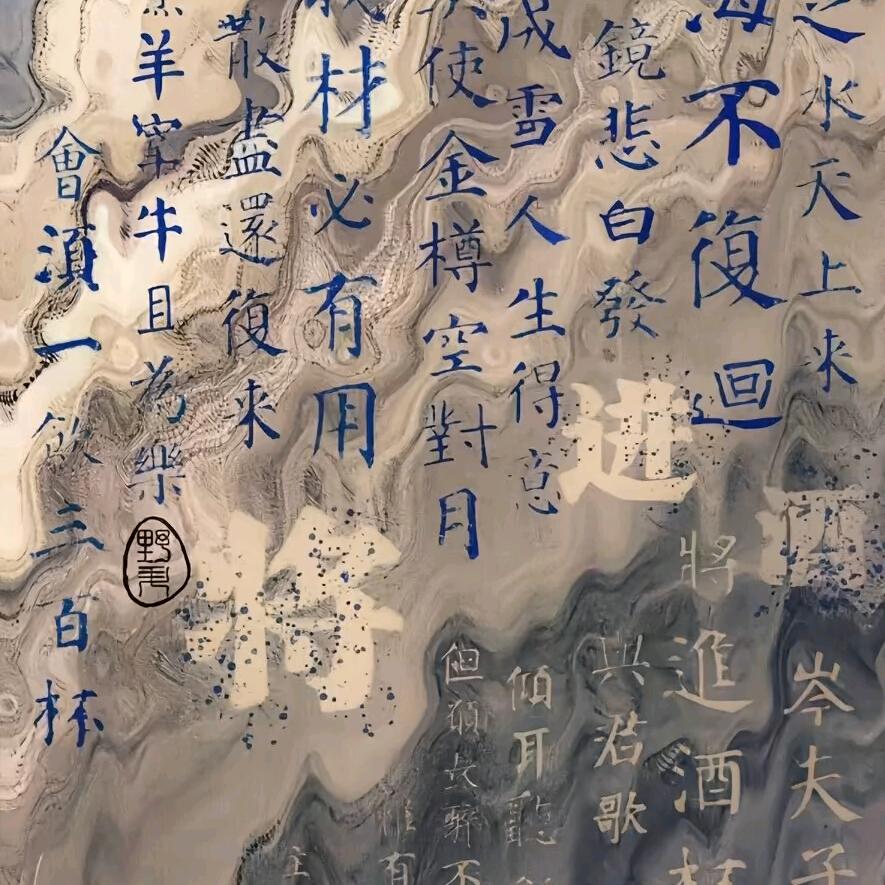 之水天上来
海不復迴
鏡悲白發
成雪人生得意
使金樽空對月
材必有用
散盡還復来
羊宰牛且為樂
會須一飲三百杯
野
进
酒
将
岑夫子
將進酒杯
與君歌
傾耳聽
但願长醉不
惟有
主